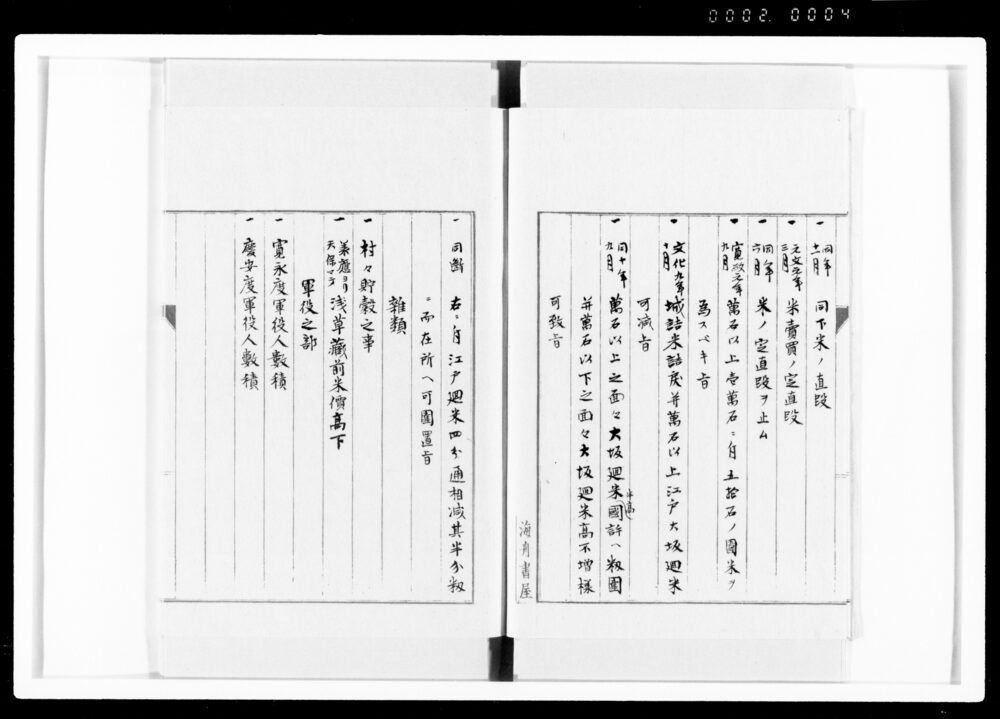 0002. 0004
一 同年十一月 同下米ノ直段
一 元文元年三月 米賣買ノ定直段
一 同年六月 米ノ定直段ヲ止ム
一 寛政元年九月 萬石以上壱萬石ニ付五拾石ノ圍米ヲ
為スベキ旨
一 文化九年十月 城詰米詰戻并萬石以上江戸大坂廻米
可減旨
一 同十年九月 萬石以上之面々大坂廻米國許ヘ籾圍
并萬石以下之面々大坂廻米高不增様
可致旨
海舟書屋
一 同断 右ニ付江戸廻米四分通相減其半分籾
ニ而在所ヘ可圍置旨
雜類
一 村々貯穀之事
一 承應ヨリ天保マテ 浅草藏前米價高下
軍役之部
一 寛永度軍役人數積
一 慶安度軍役人數積